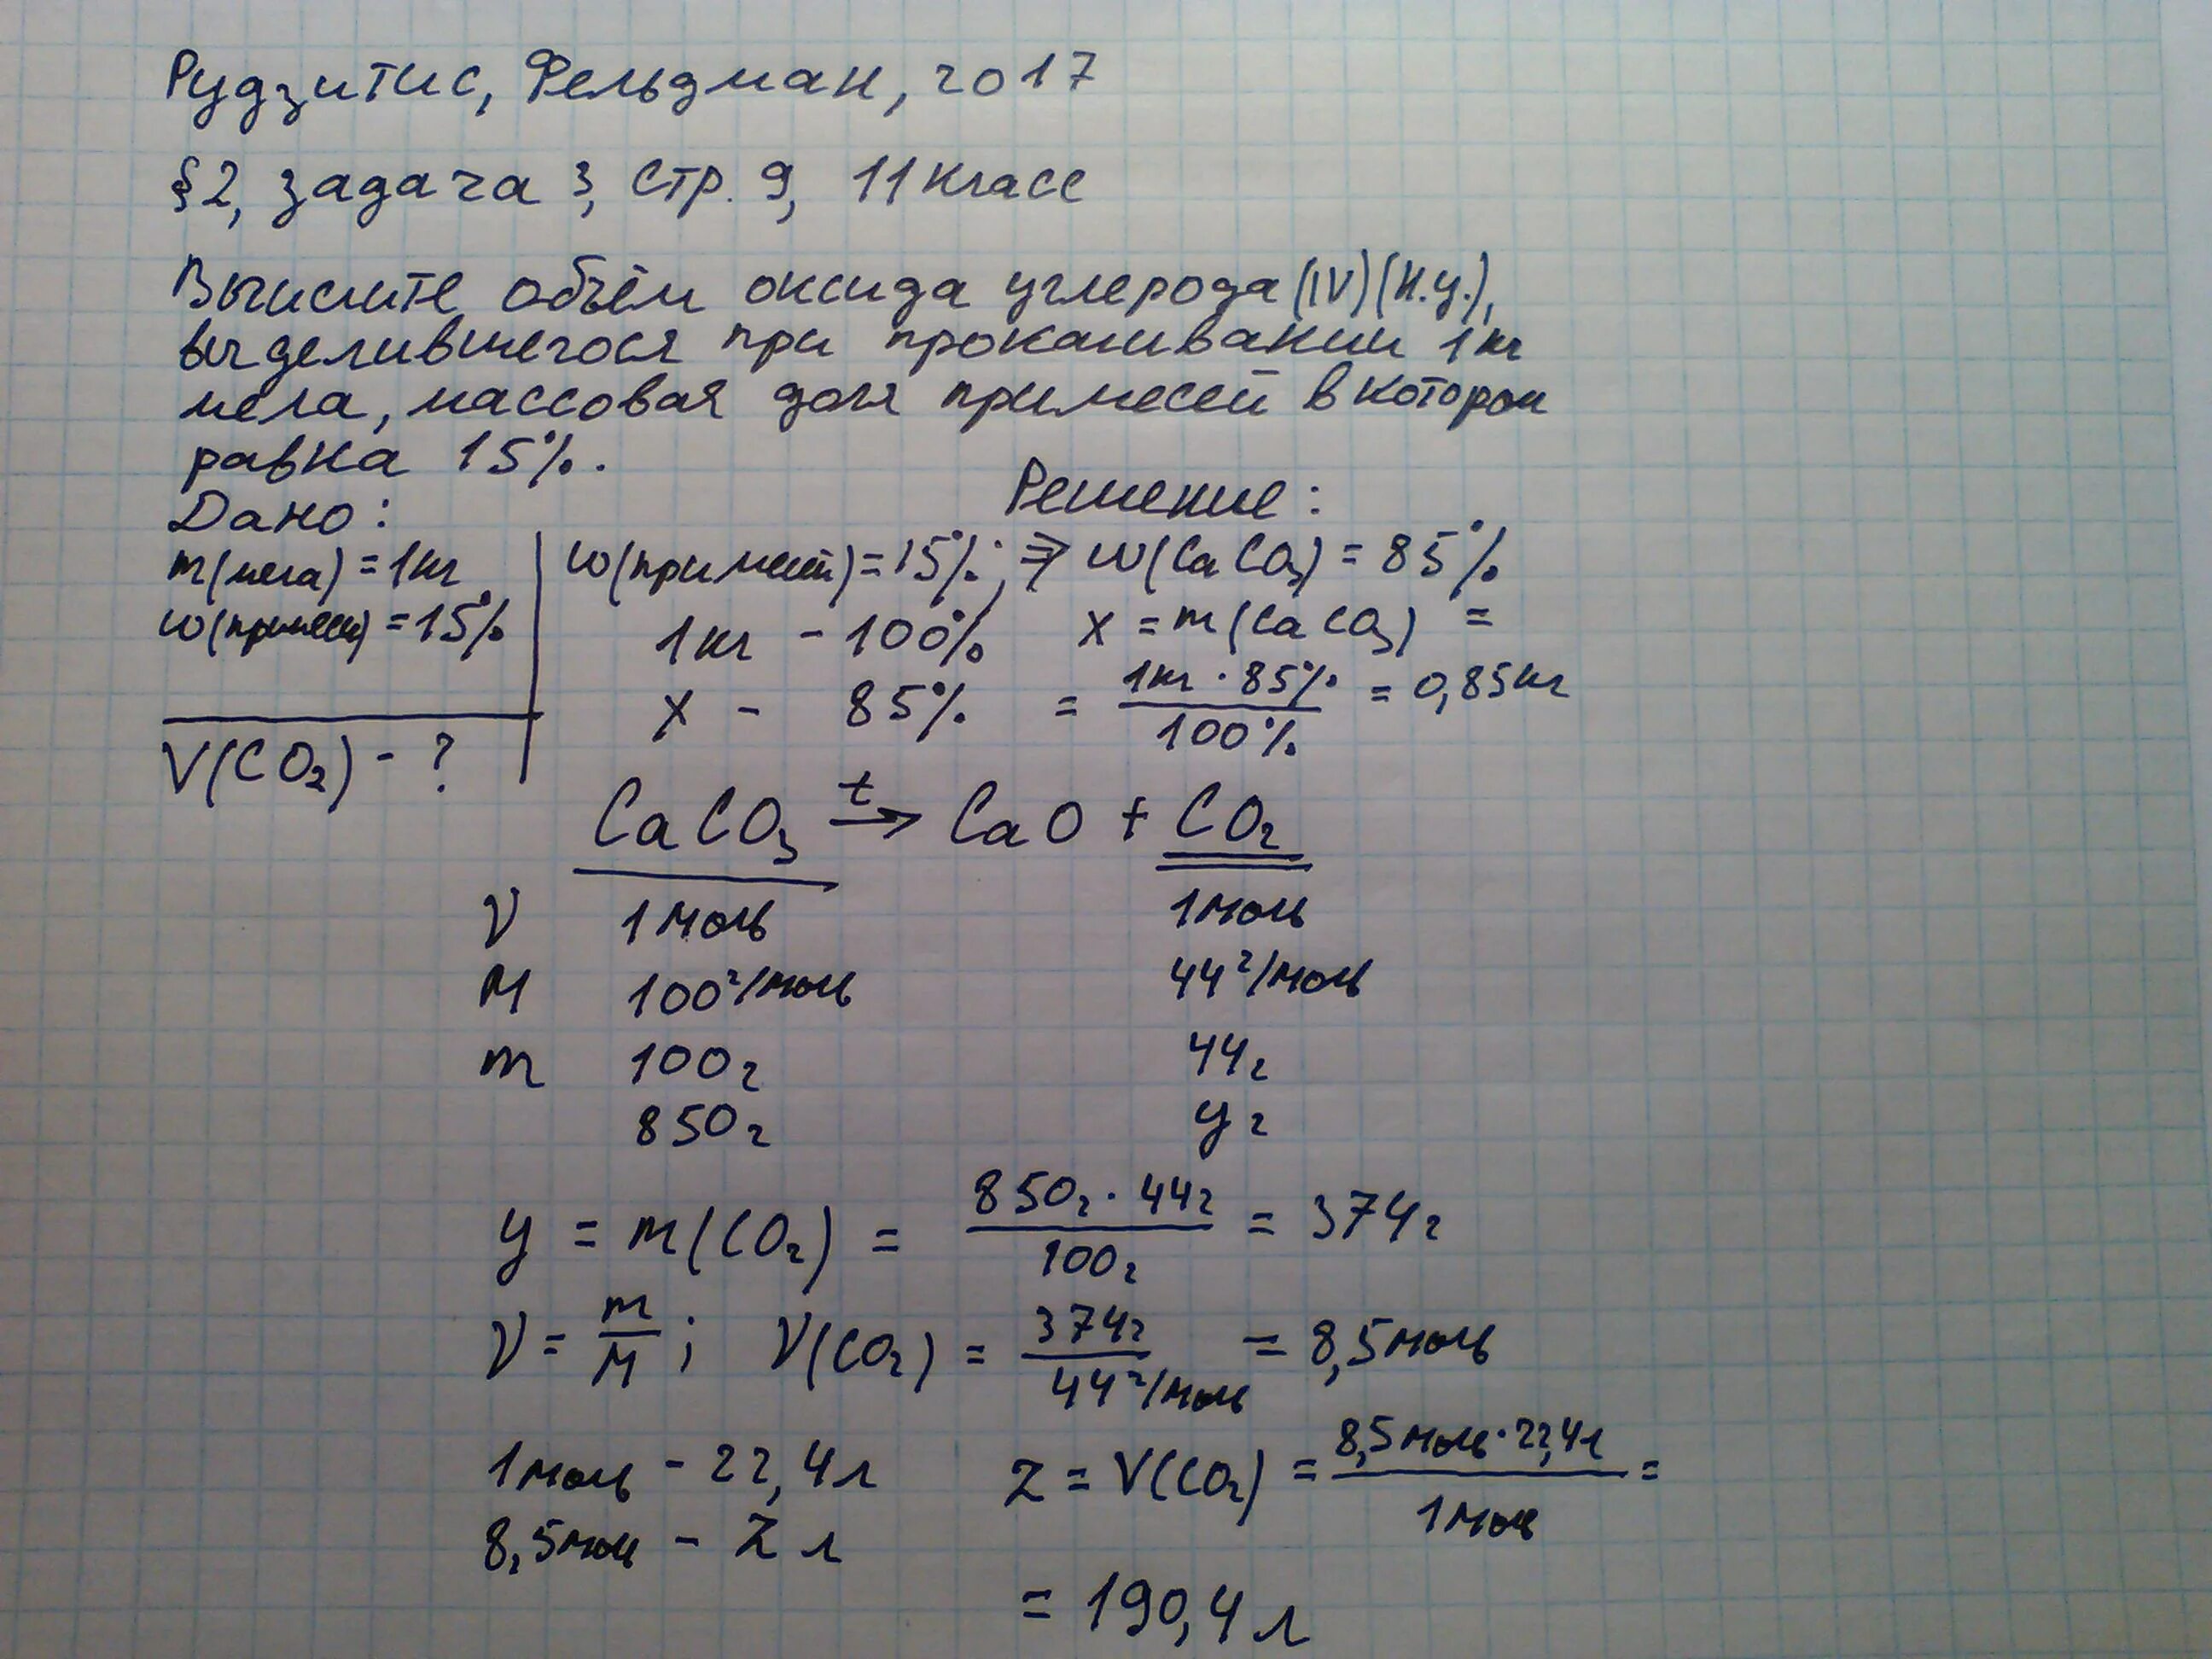 Рудзитис, Фельдман, 2017
§2, задача 3, стр. 9, 11 класс
Вычислите объём оксида углерода (IV) (н.у.),
выделившегося при прокаливании 1кг
мела, массовая доля примесей в котором
равна 15%.
Дано:
Решение:
m(мела) = 1кг
ω(примесей) = 15%
V(CO₂) - ?
ω(примесей) = 15%; ⇒ ω(CaCO₃) = 85%
1кг - 100% x = m(CaCO₃) =
x - 85% = 1кг · 85% / 100% = 0,85кг
CaCO₃ t→ CaO + CO₂
ν 1моль 1моль
M 100г/моль 44г/моль
m 100г 44г
850г yг
y = m(CO₂) = 850г · 44г / 100г = 374г
ν = m/M; ν(CO₂) = 374г / 44г/моль = 8,5моль
1моль - 22,4л z = V(CO₂) = 8,5моль · 22,4л / 1моль =
8,5моль - z л
= 190,4л